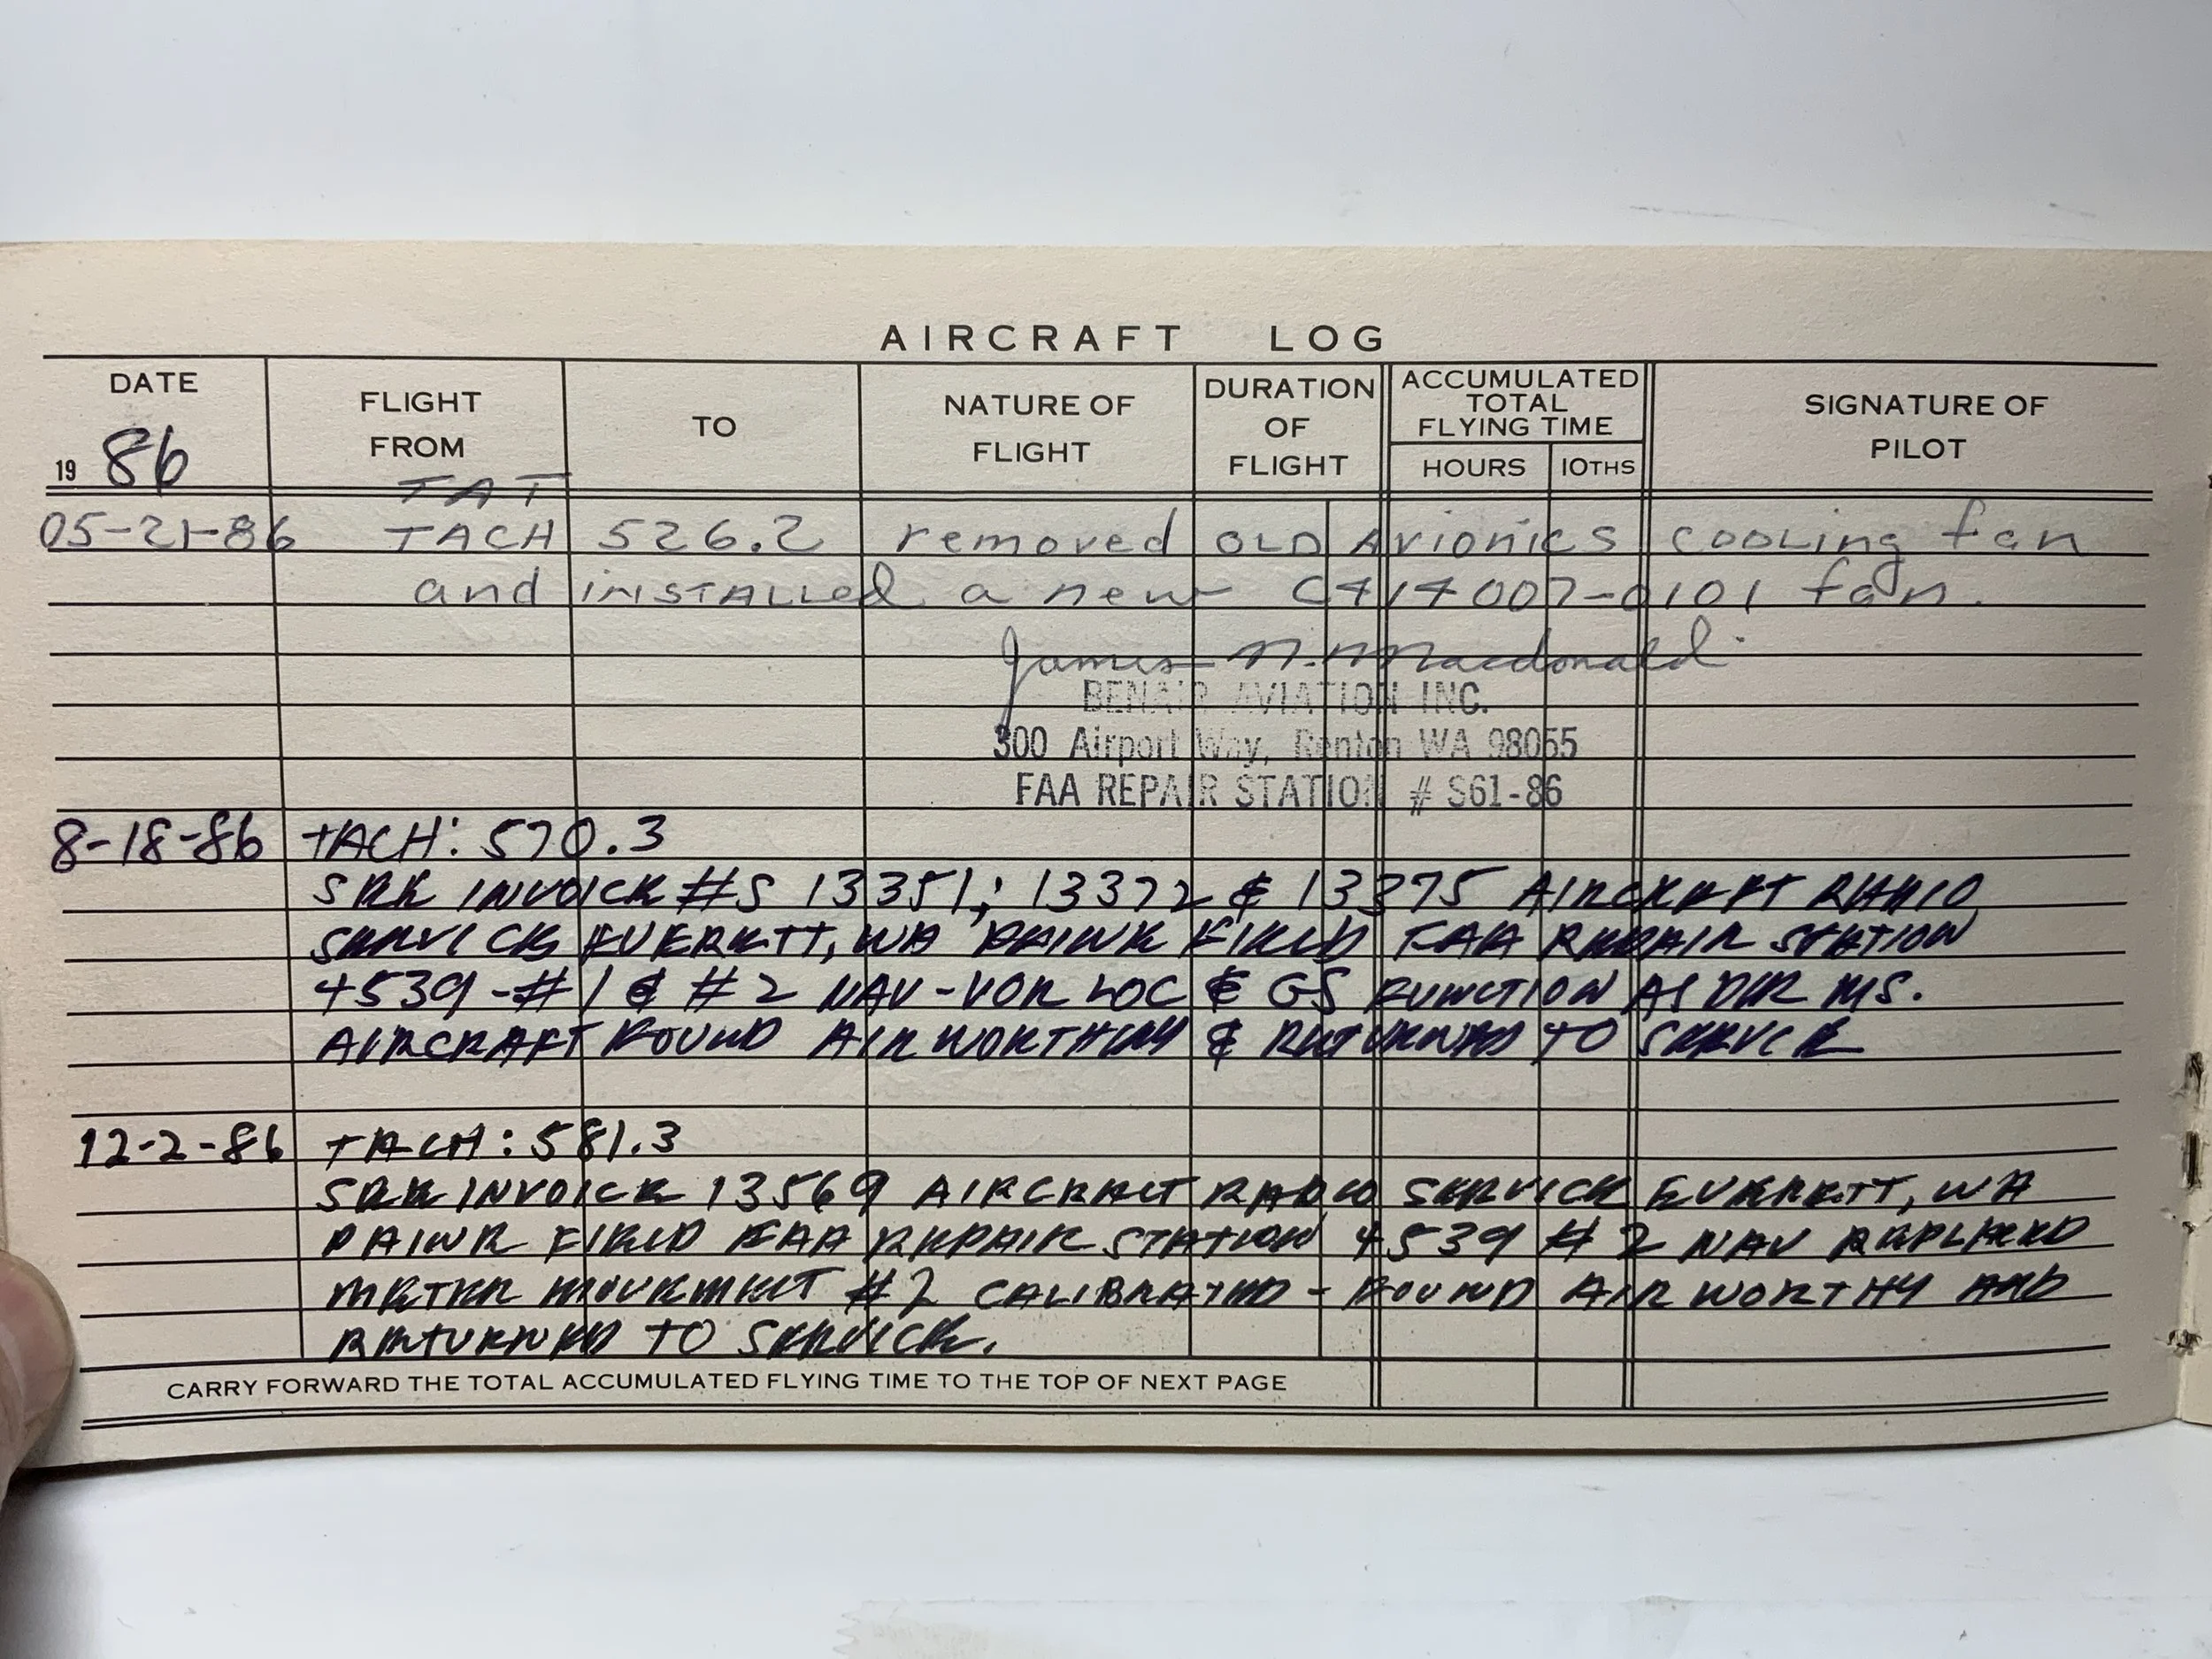 AIRCRAFT LOG
DATE
19 86
FLIGHT
FROM
TO
NATURE OF
FLIGHT
DURATION
OF
FLIGHT
ACCUMULATED
TOTAL
FLYING TIME
HOURS 10THS
SIGNATURE OF
PILOT
TAT
05-21-86 TACH 526.2 removed OLD Avionics cooling fan
and installed a new C414007-0101 fan.
James N. Macdonald
BENAIR AVIATION INC.
300 Airport Way, Renton WA 98055
FAA REPAIR STATION # S61-86
8-18-86 TACH: 570.3
SEE INVOICE #S 13351; 13372 & 13375 AIRCRAFT RADIO
SERVICE EVERETT, WA PAINE FIELD FAA REPAIR STATION
4539 - #1 & #2 NAV-VOR LOC & GS FUNCTION AS PER MS.
AIRCRAFT FOUND AIRWORTHY & RETURNED TO SERVICE
12-2-86 TACH: 581.3
SEE INVOICE 13569 AIRCRAFT RADIO SERVICE EVERETT, WA
PAINE FIELD FAA REPAIR STATION 4539 #2 NAV REPLACED
METER MOVEMENT #2 CALIBRATED - FOUND AIRWORTHY AND
RETURNED TO SERVICE.
CARRY FORWARD THE TOTAL ACCUMULATED FLYING TIME TO THE TOP OF NEXT PAGE